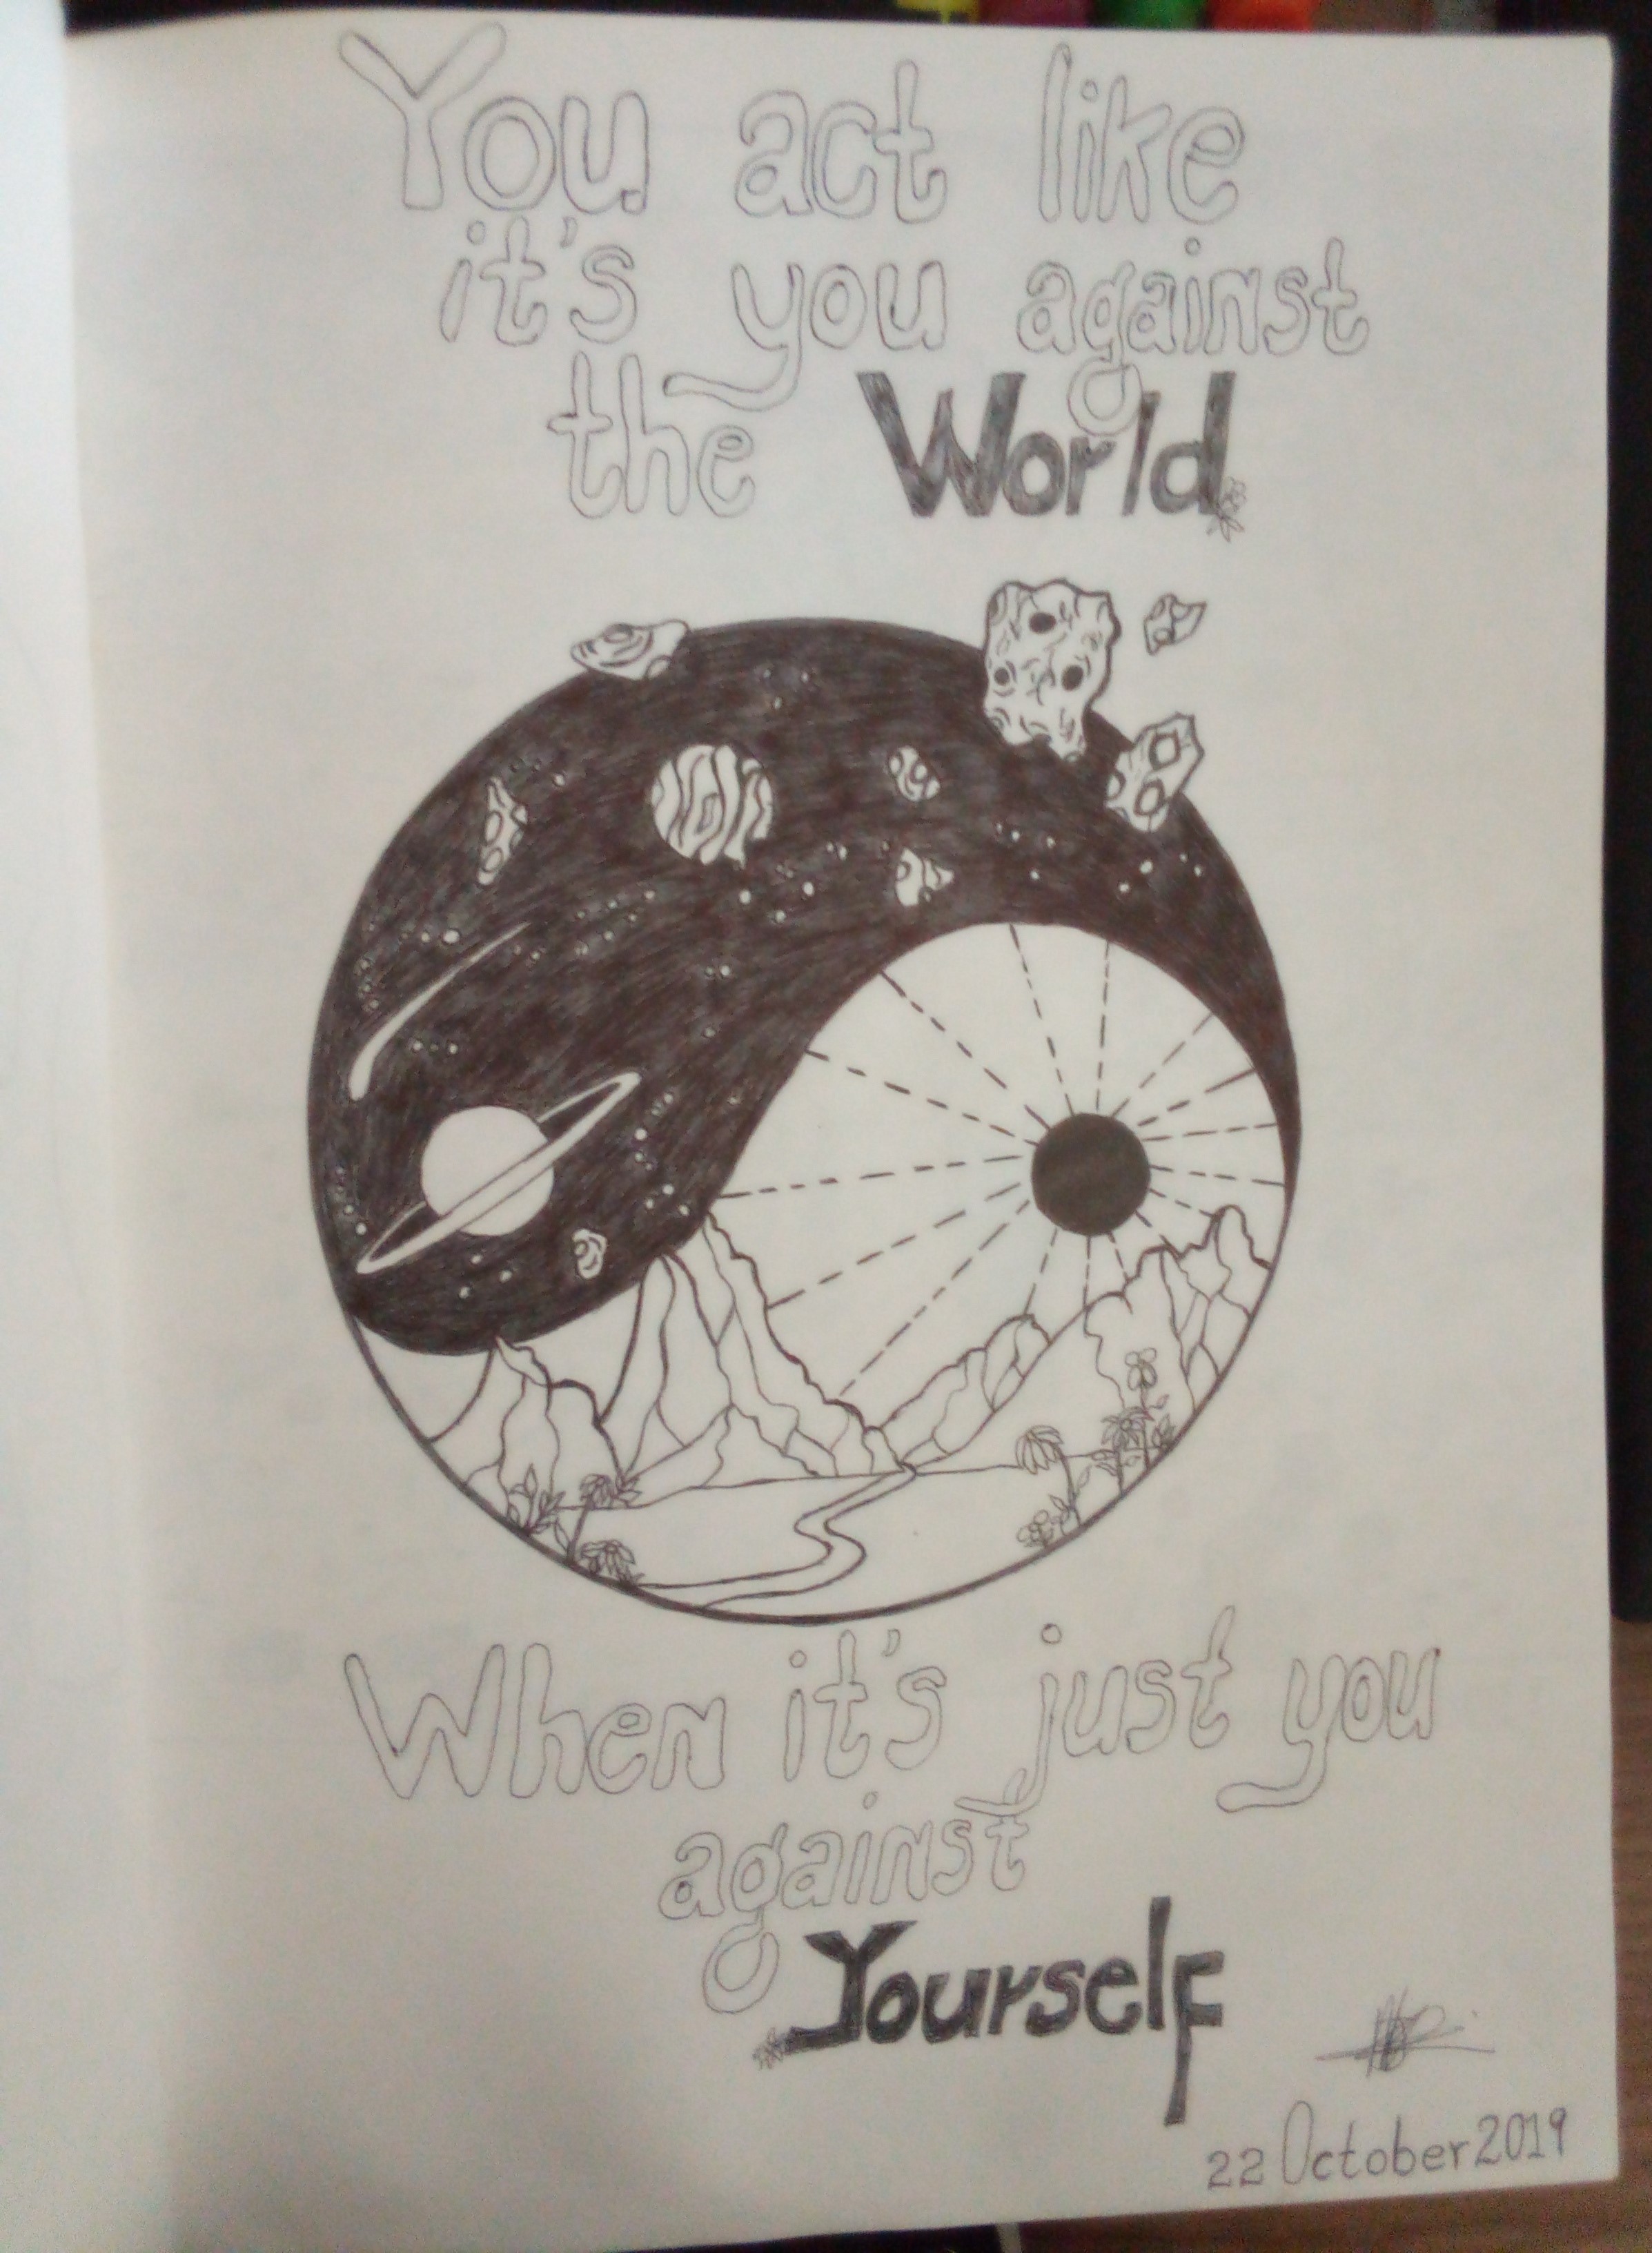 You act like
it's you against
the World
When it's just you
against
Yourself
22 October 2019